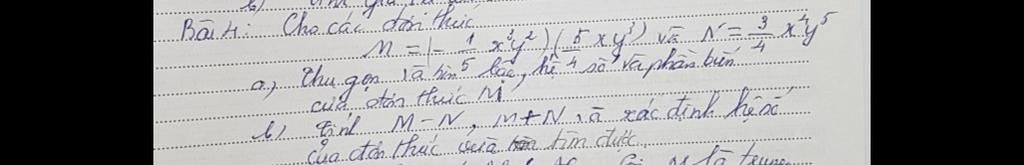 Bài 4: Cho các đơn thức
M = (- 1/5 x³y²) (5/4 x y³) và N = 3/4 x⁴y⁵
a.) Thu gọn và tìm bậc, hệ số và phần biến
của đơn thức M
b) Tính M - N, M + N và xác định hệ số
của đơn thức vừa tìm được.